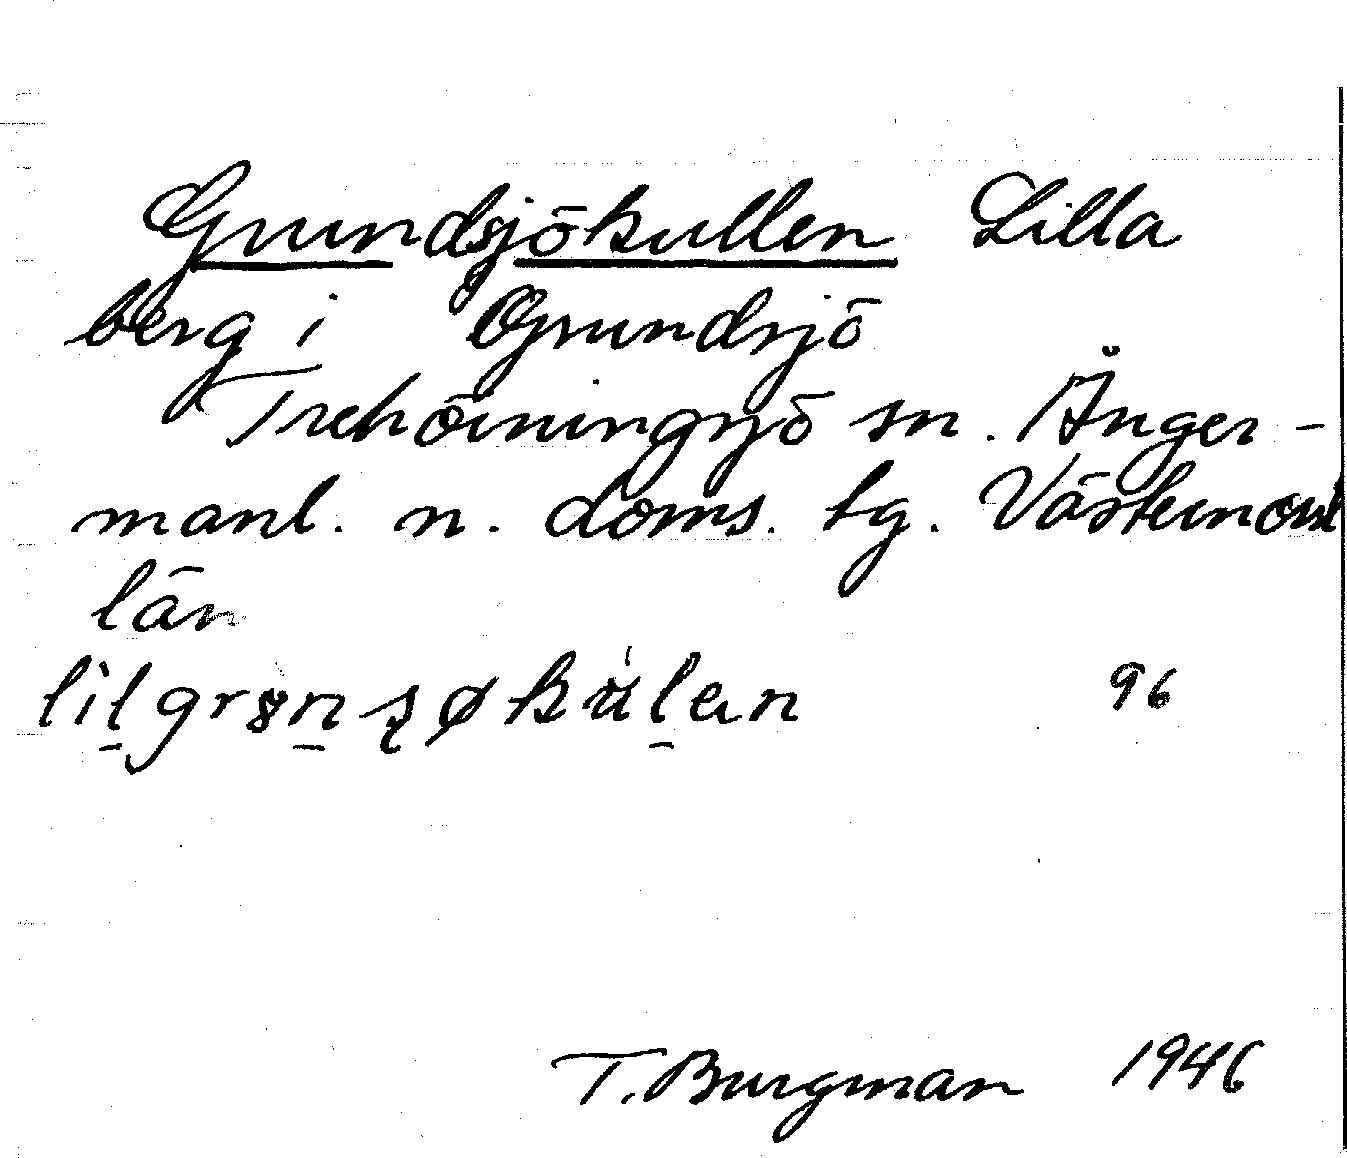 Grundsjökullen Lilla
berg i Grundsjö
Trehörningsjö sn. Ånger-
manl. n. doms. tg. Västernorrl
län
96
T. Burgman 1946